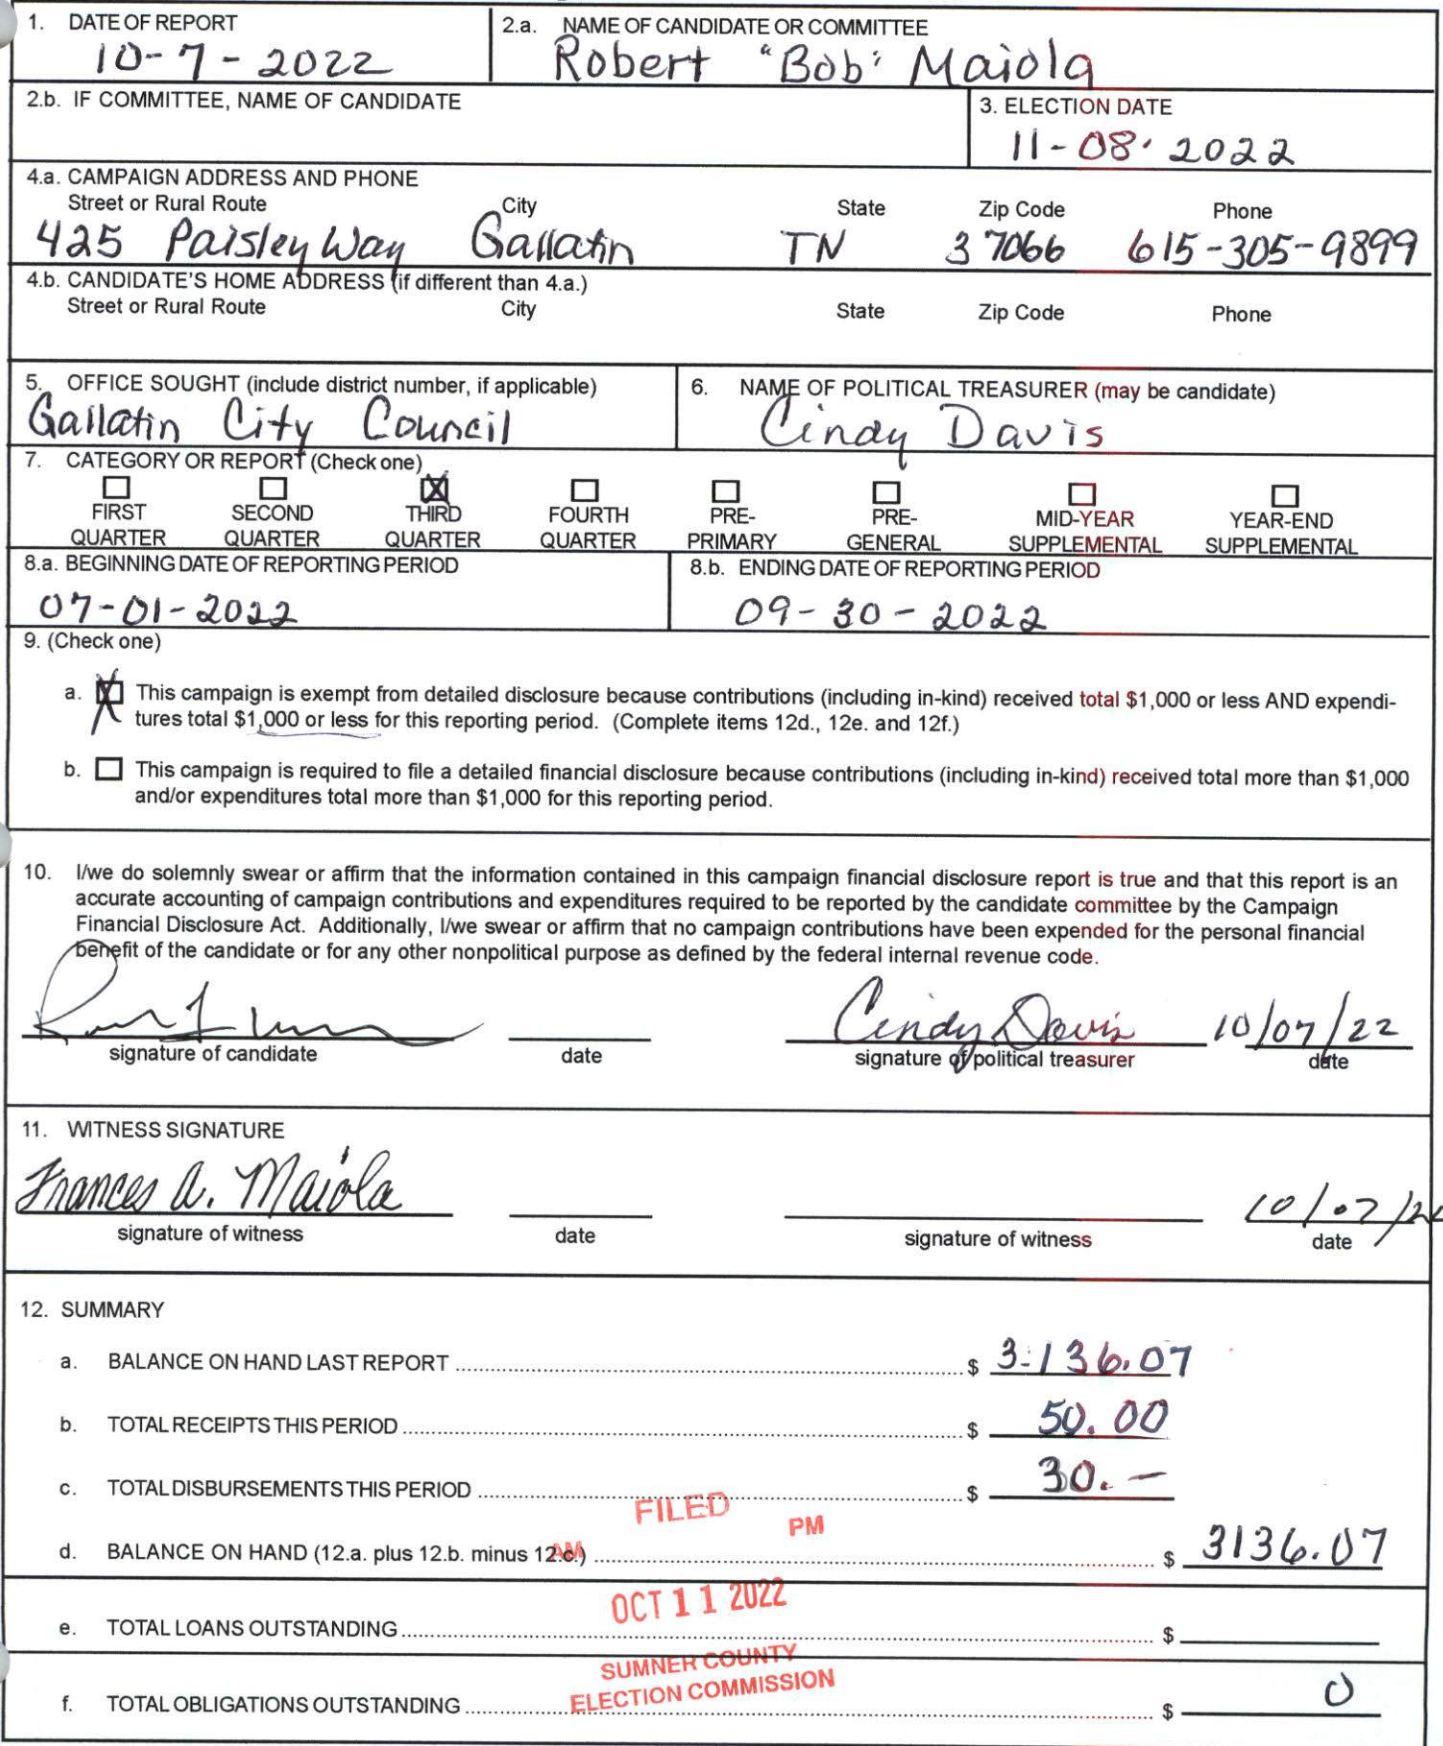 1. DATE OF REPORT
10-7-2022
2.a. NAME OF CANDIDATE OR COMMITTEE
Robert "Bob' Maiola
2.b. IF COMMITTEE, NAME OF CANDIDATE
3. ELECTION DATE
11-08-2022
4.a. CAMPAIGN ADDRESS AND PHONE
Street or Rural Route City State Zip Code Phone
425 Paisley Way Gallatin TN 37066 615-305-9899
4.b. CANDIDATE'S HOME ADDRESS (if different than 4.a.)
Street or Rural Route City State Zip Code Phone
5. OFFICE SOUGHT (include district number, if applicable)
Gallatin City Council
6. NAME OF POLITICAL TREASURER (may be candidate)
Cindy Davis
7. CATEGORY OR REPORT (Check one)
FIRST QUARTER
SECOND QUARTER
THIRD QUARTER
FOURTH QUARTER
PRE-PRIMARY
PRE-GENERAL
MID-YEAR SUPPLEMENTAL
YEAR-END SUPPLEMENTAL
8.a. BEGINNING DATE OF REPORTING PERIOD
07-01-2022
8.b. ENDING DATE OF REPORTING PERIOD
09-30-2022
9. (Check one)
a. This campaign is exempt from detailed disclosure because contributions (including in-kind) received total $1,000 or less AND expendi-
tures total $1,000 or less for this reporting period. (Complete items 12d., 12e. and 12f.)
b. This campaign is required to file a detailed financial disclosure because contributions (including in-kind) received total more than $1,000
and/or expenditures total more than $1,000 for this reporting period.
10. I/we do solemnly swear or affirm that the information contained in this campaign financial disclosure report is true and that this report is an
accurate accounting of campaign contributions and expenditures required to be reported by the candidate committee by the Campaign
Financial Disclosure Act. Additionally, I/we swear or affirm that no campaign contributions have been expended for the personal financial
benefit of the candidate or for any other nonpolitical purpose as defined by the federal internal revenue code.
Cindy Davis 10/07/22
signature of candidate date signature of political treasurer date
11. WITNESS SIGNATURE
Frances A. Maiola 10/07/22
signature of witness date signature of witness date
12. SUMMARY
a. BALANCE ON HAND LAST REPORT $ 3.136.07
b. TOTAL RECEIPTS THIS PERIOD $ 50.00
c. TOTAL DISBURSEMENTS THIS PERIOD $ 30.—
FILED
AM PM
d. BALANCE ON HAND (12.a. plus 12.b. minus 12.c.) $ 3136.07
OCT 11 2022
e. TOTAL LOANS OUTSTANDING $
SUMNER COUNTY
ELECTION COMMISSION
f. TOTAL OBLIGATIONS OUTSTANDING $ 0